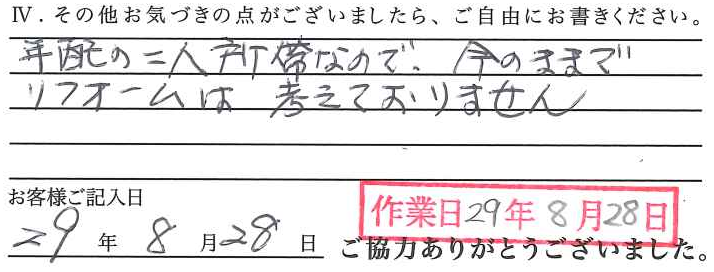 Ⅳ．その他お気づきの点がございましたら、ご自由にお書きください。
年配の二人所帯なので、今のままで
リフォームは考えておりません
お客様ご記入日
作業日29年8月28日
29年8月28日
ご協力ありがとうございました。